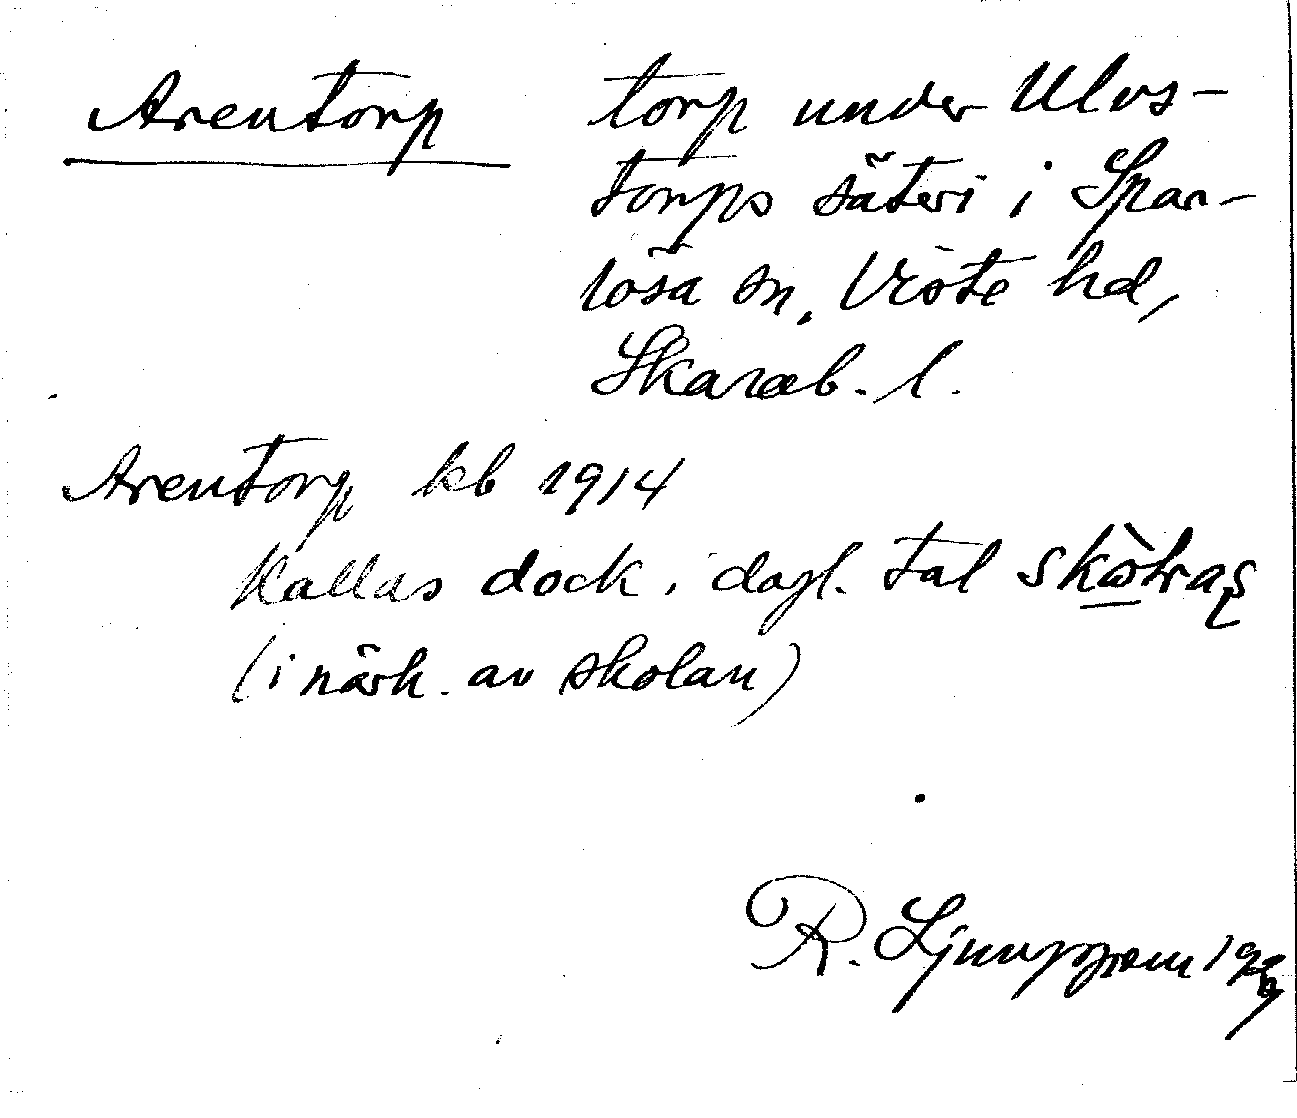 Arentorp torp under Ulvs-
torps säteri i Spar-
lösa sn, Viste hd,
Skarab. l.
Arentorp kb 1914
Kallas dock i dagl. tal
(i närh. av skolan)
R. Ljunggren